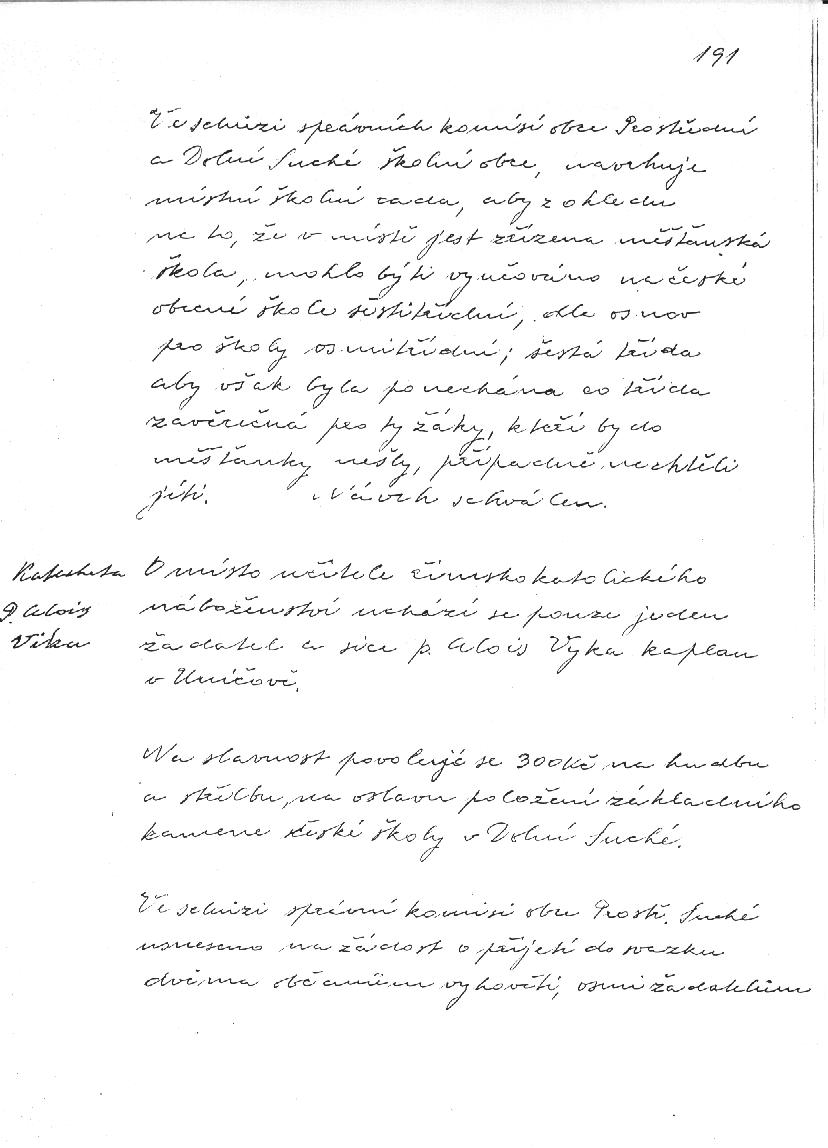 191
Ve schůzi správních komisí obce Prostřední
a Dolní Suché školní obce, navrhuje
místní školní rada, aby z ohledu
na to, že v místě jest zřízena měšťanská
škola, mohlo býti vyučováno na české
obecné škole šestitřídní, dle osnov
pro školy osmitřídní; šestá třída
aby však byla ponechána co třída
závěrečná pro ty žáky, kteří by do
měšťanky nešly, případně nechtěli
jíti. Návrh schválen.
Katecheta
P. Alois
Vika
O místo učitele římskokatolického
náboženství uchází se pouze jeden
žadatel a sice p. Alois Vyka kaplan
v Uničově.
Na slavnost povoluje se 300Kč na hudbu
a střelbu, na oslavu položení základního
kamene české školy v Dolní Suché.
Ve schůzi správní komisi obce Prostř. Suché
usneseno na žádost o přijetí do svazku
dvěma občanům vyhověti, osmi žadatelům